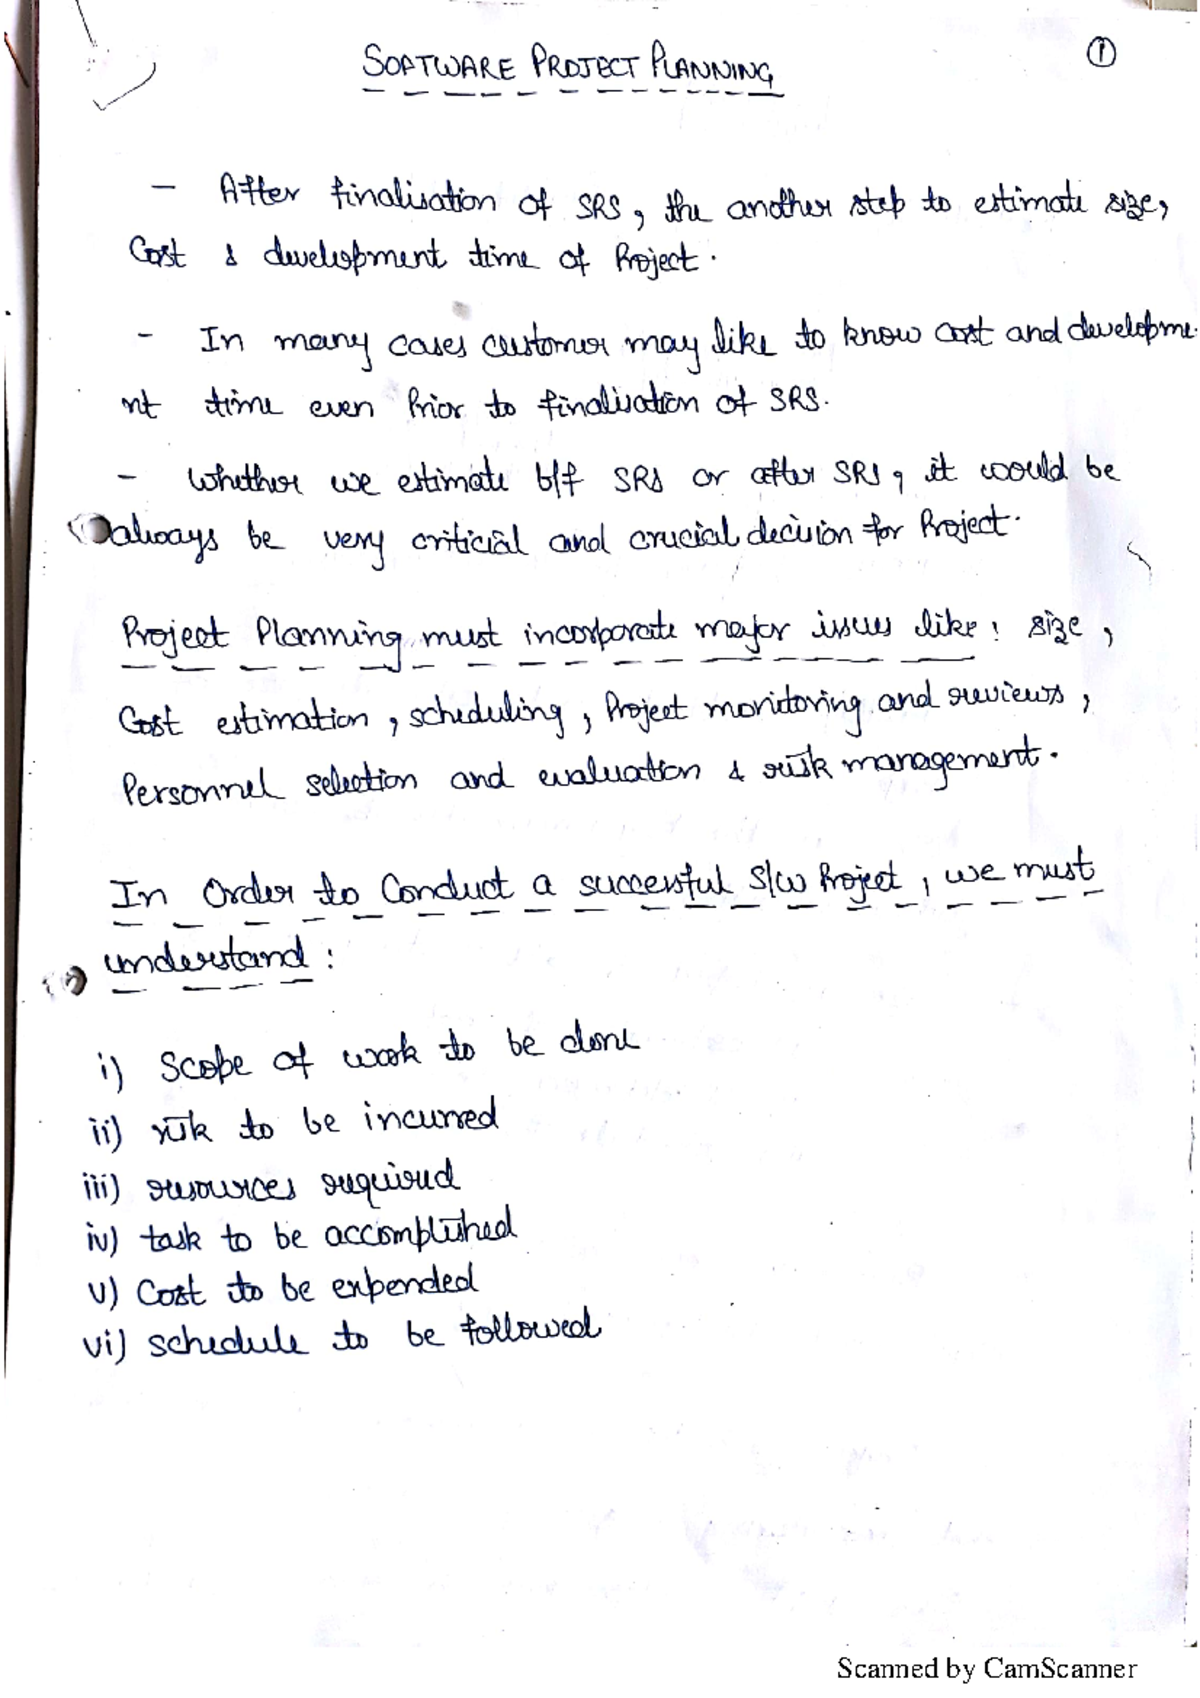 SOFTWARE PROJECT PLANNING
1
- After finalisation of SRS, the another step to estimate size,
Cost & development time of Project.
- In many cases customer may like to know cost and developme
nt time even Prior to finalisation of SRS.
- Whether we estimate b/f SRS or after SRS, it would be
always be very criticial and crucial decision for Project.
Project Planning must incorporate major issues like: size,
Cost estimation, scheduling, Project monitoring and reviews,
Personnel selection and evaluation & risk management.
In Order to Conduct a successful S/W Project, we must
understand:
i) Scope of work to be done
ii) risk to be incurred
iii) resources required
iv) task to be accomplished
v) Cost to be expended
vi) schedule to be followed
Scanned by CamScanner